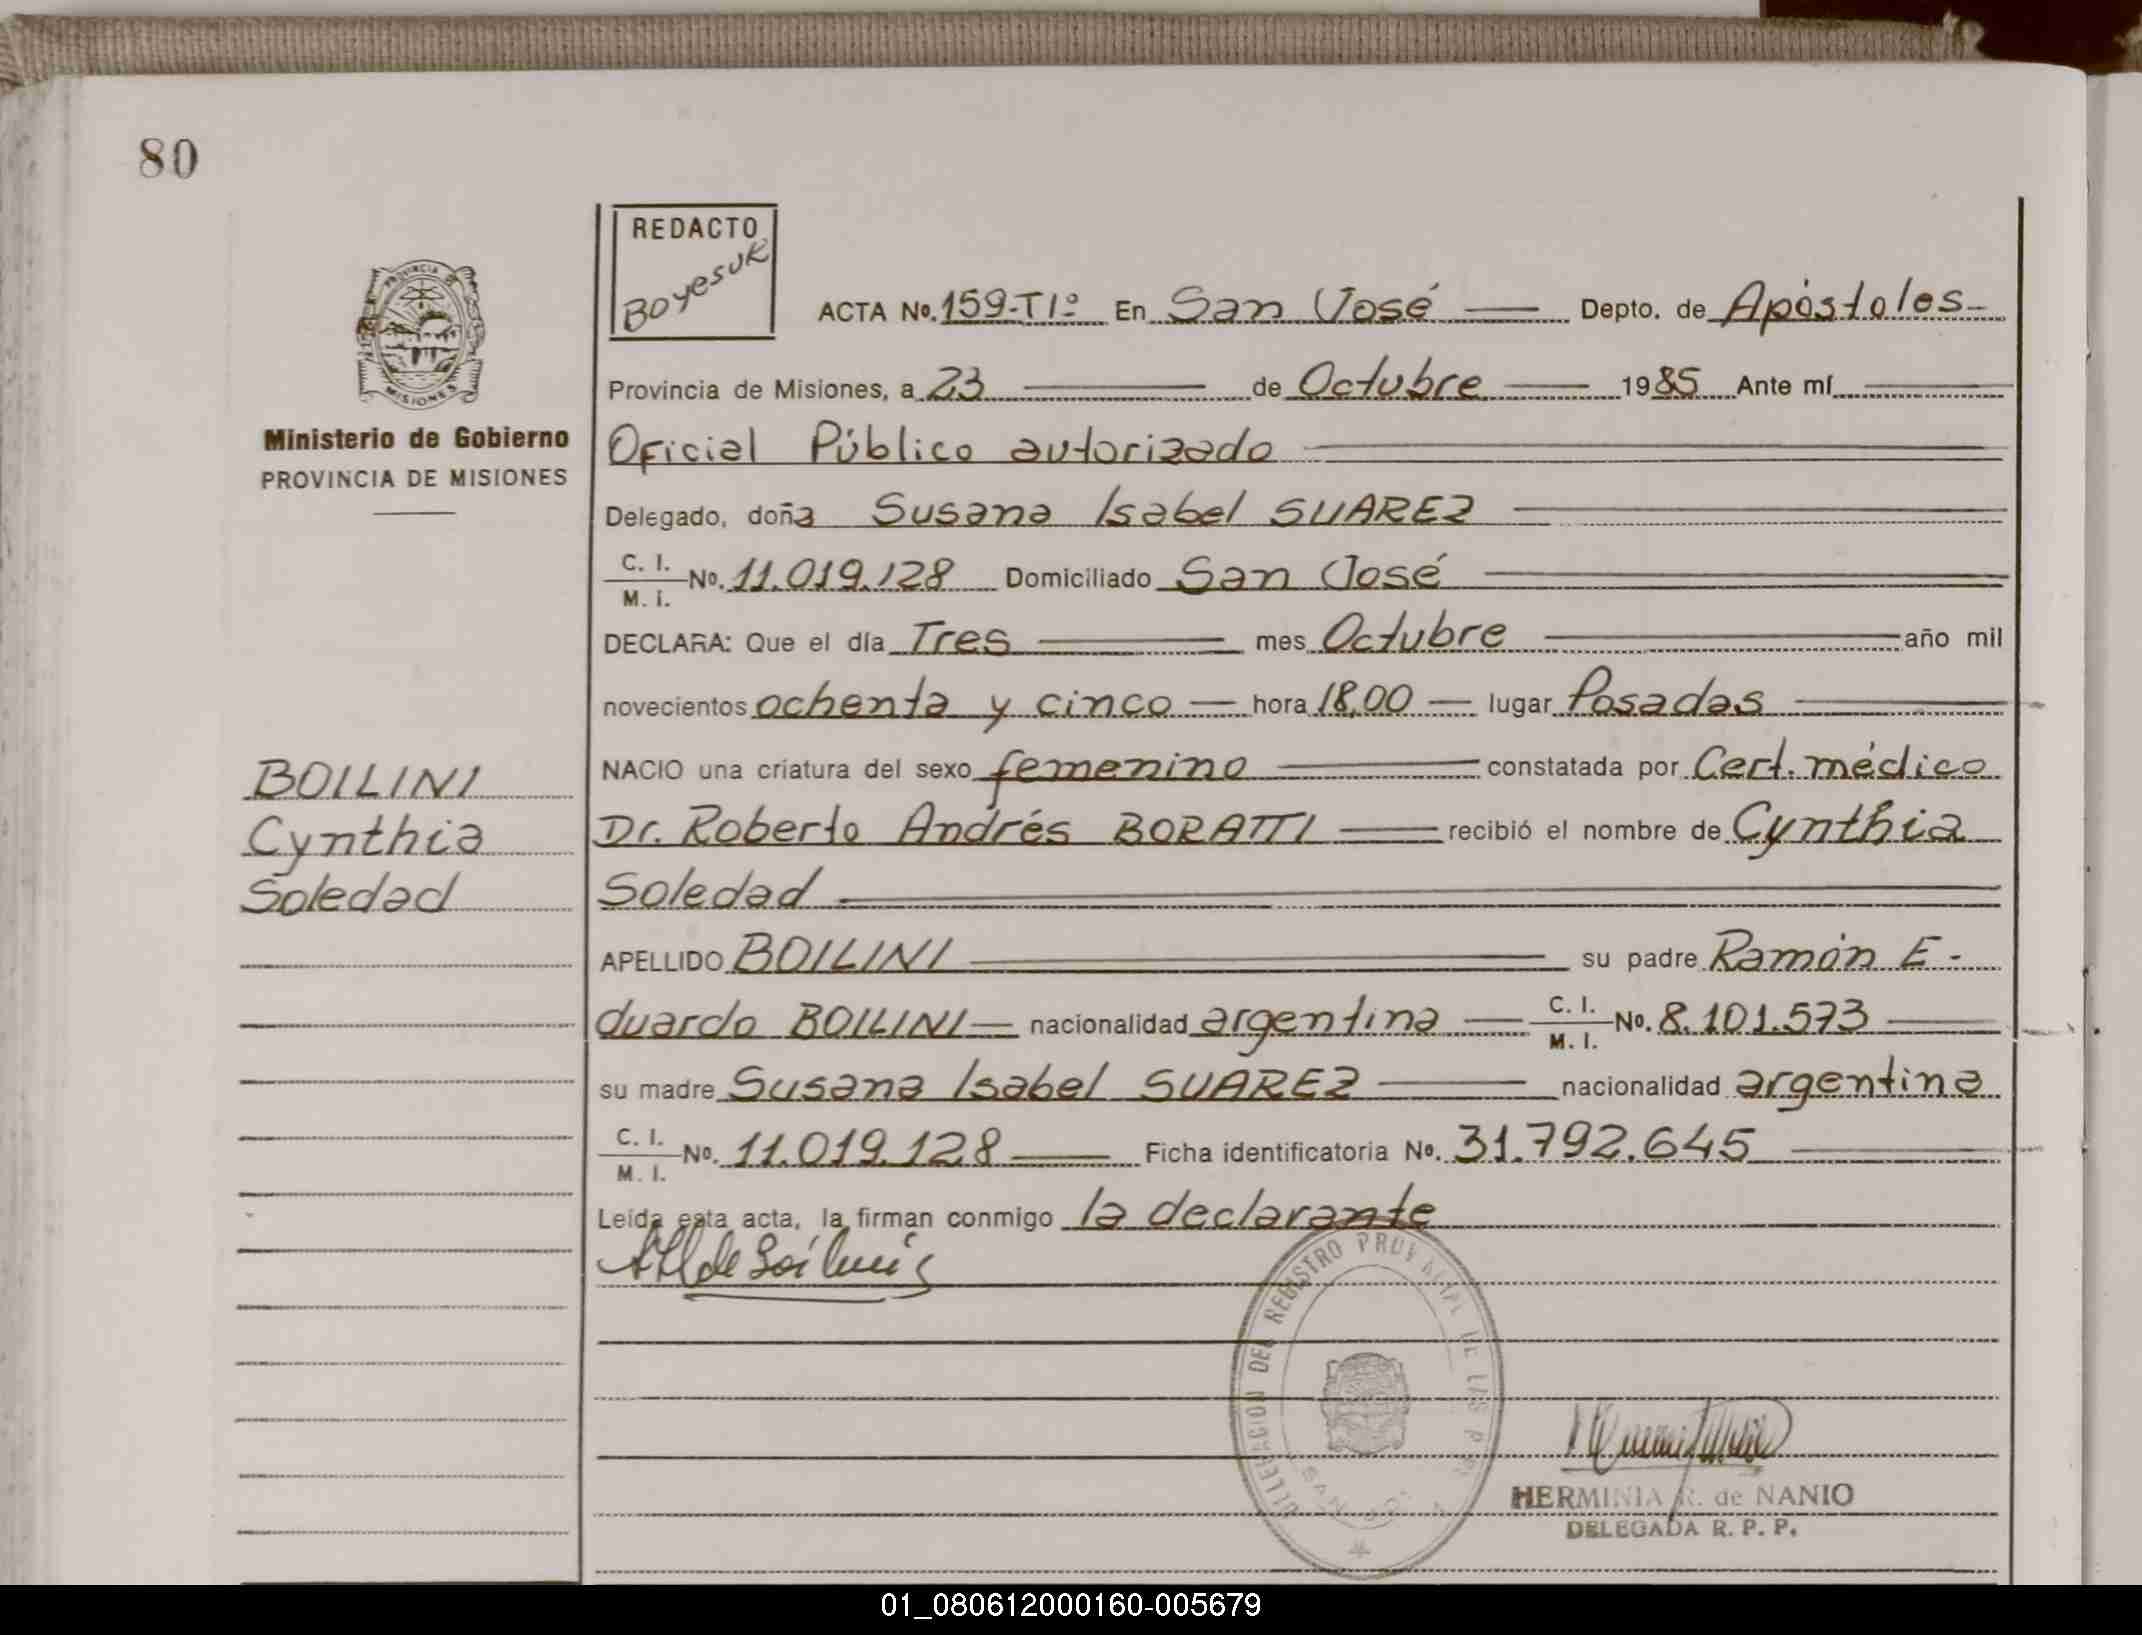 80
REDACTO
Boyesuk
PROVINCIA DE
MISIONES
ACTA No. 159-T1º En San José Depto. de Apóstoles-
Provincia de Misiones, a 23 de Octubre 1985 Ante mí
Ministerio de Gobierno
PROVINCIA DE MISIONES
Oficial Público autorizado
Delegado, doña Susana Isabel SUAREZ
C. I.
M. I.
No. 11.019.128 Domiciliado San José
DECLARA: Que el día Tres mes Octubre año mil
novecientos ochenta y cinco — hora 18,00 — lugar Posadas
NACIO una criatura del sexo femenino constatada por Cert. médico
BOILINI
Cynthia
Soledad
Dr. Roberto Andrés BORATTI recibió el nombre de Cynthia
Soledad
APELLIDO BOILINI su padre Ramón E-
duardo BOILINI — nacionalidad argentina — C. I. M. I. No. 8.101.573
su madre Susana Isabel SUAREZ nacionalidad argentina
C. I.
M. I.
No. 11.019.128 Ficha identificatoria No. 31.792.645
Leída esta acta, la firman conmigo la declarante
DELEGACION DEL REGISTRO PROVINCIAL DE LAS
SAN
HERMINIA R. de NANIO
DELEGADA R. P. P.
01_080612000160-005679